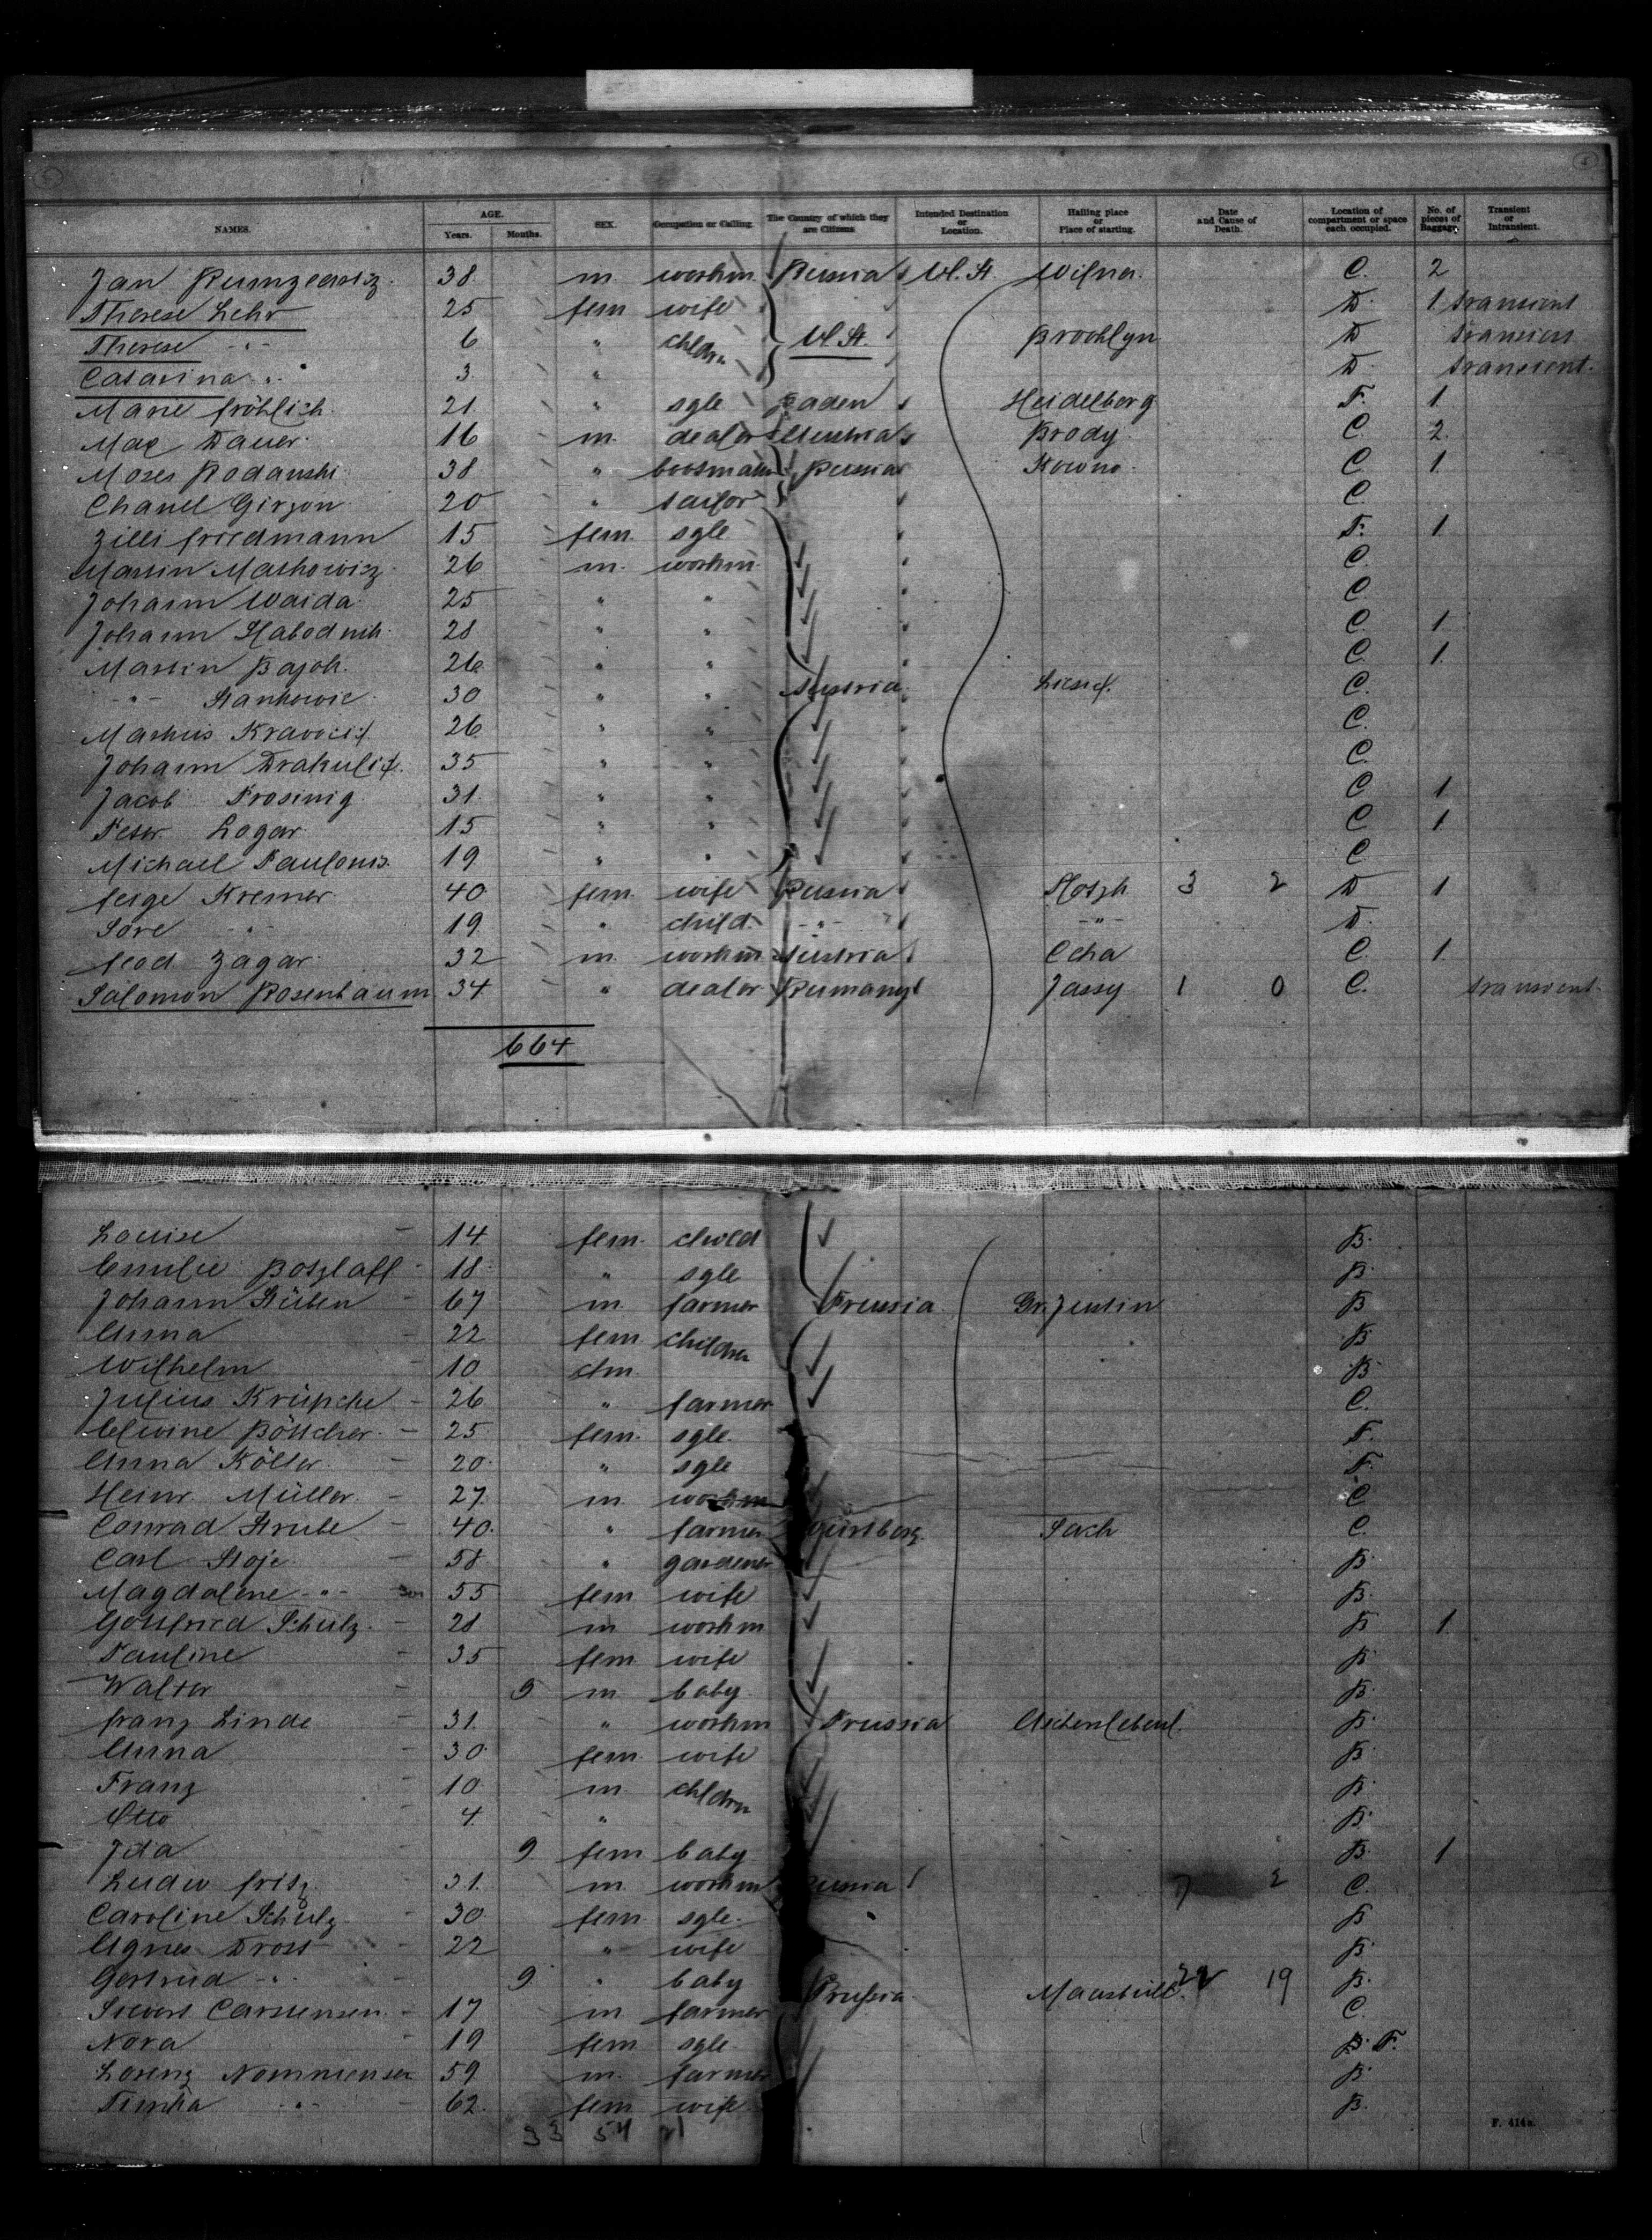 NAMES. AGE. Years. Months. SEX. Occupation or Calling. The Country of which they are Citizens Intended Destination or Location. Hailing place or Place of starting. Date and Cause of Death. Location of compartment or space each occupied. No. of pieces of Baggage. Transient or Intransient.
Jan 38 m. workm. Russia U. St. Wilna. C. 2
Therese Lehr 25 fem wife D. 1 transient
Therese -"- 6 " chldrn U. St. Brooklyn D transient
Catarina " 3 " D. transient.
Marie Fröhlich 21 " sgle Baden Heidelberg F. 1
Max Dauer 16 m. dealer Austria Brody C. 2
Moses Rodanski 38 " Russia Kowno C. 1.
Chanel Girzon 20 " tailor C.
Zilli Friedmann 15 fem. sgle F. 1
Martin Markowicz 26 m. workm. C.
Johann Waida 25 " " C.
Johann 28 " " C. 1
Martin Bajok. 26 " " C. 1.
-"- Stankowic 30 " " Austria C.
Markus 26 " " C.
Johann Drakulic. 35 " " C.
Jacob Prosinig 31 " " C 1
Peter Logar 15 " " C 1
Michael 19 " " C
Feige Kremer 40 fem. wife Russia 3 2 D 1
Sore -"- 19 " child. -"- -"- D.
Zagar 32 m. workm Austria C. 1.
Salomon Rosenbaum 34 " dealer Rumany Jassy 1 0 C. transient.
664
Louise 14 fem. child B.
Emilie Potzlaff 18 " sgle B.
Johann Stüben 67 m. farmer Preussia Gr. Justin B
Anna 22 fem. children B
Wilhelm 10 dm. B
Julius Krüpche 26 " farmer C.
Elwine Böttcher 25 fem. sgle. F.
Anna Költer 20 " sgle F.
Heinr. Müller 27 m. workm C
Conrad Strube 40 " farmer C.
Carl Stoje 58 " gardener B.
Magdalene -"- 55 fem wife B.
Gottfried Schulz 28 m workm B 1
Pauline 35 fem wife B.
Walter 9 m baby B.
Franz Linde 31. " workm Prussia B.
Anna 30 fem. wife B.
Franz 10 m. chldrn B.
Otto 4 " B.
Ida 9 fem baby B. 1
Fritz 31. m. workm Russia 7 2 C.
Caroline Schulz 30 fem. sgle. B
Agnes Dross 22 " wife B.
Gertrud -"- 9 " baby B.
Sievert Carstensen 17 m farmer Prussia. 22 19 C.
Nora 19 fem sgle. B. F.
Lorenz Nommensen 59 m. farmer B.
-"- 62. fem wife B.
33 54 21
F. 414a.